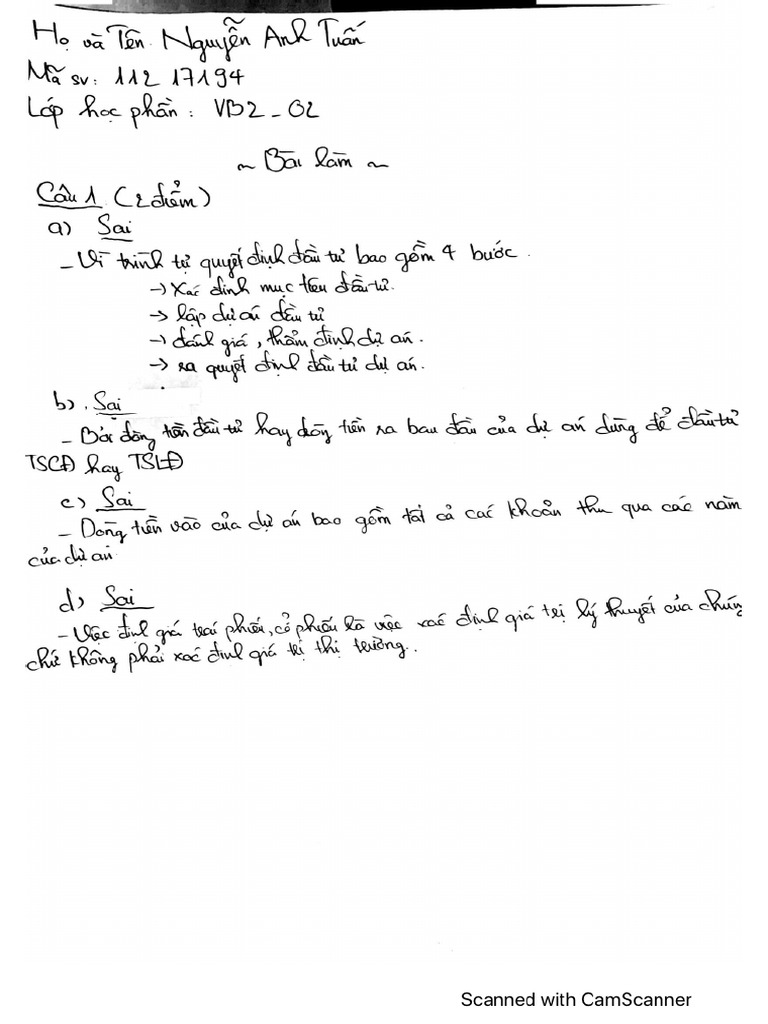 Họ và Tên. Nguyễn Anh Tuấn
Mã sv: 11217194
Lớp học phần: VB2_02
~ Bài làm ~
Câu 1 (2 điểm)
a) Sai
- Vì trình tự quyết định đầu tư bao gồm 4 bước.
→ Xác định mục tiêu đầu tư.
→ lập dự án đầu tư
→ đánh giá, thẩm định dự án.
→ ra quyết định đầu tư dự án.
b). Sai
- Bởi dòng tiền đầu tư hay dòng tiền ra ban đầu của dự án dùng để đầu tư
TSCĐ hay TSLĐ
c) Sai
- Dòng tiền vào của dự án bao gồm tất cả các khoản thu qua các năm
của dự án
d) Sai
- Việc định giá trái phiếu, cổ phiếu là việc xác định giá trị lý thuyết của chứng
chứ không phải xác định giá trị thị trường.
Scanned with CamScanner